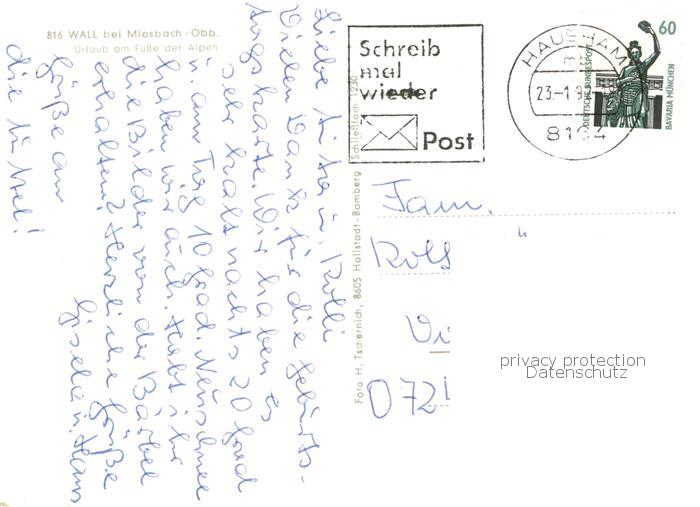 816 WALL bei Miesbach · Obb.
Urlaub am Fuße der Alpen
Liebe Rolli
Vielen Dank für die Geburts-
tagskarte. Wir haben es
sehr kalt nachts 20 Grad
u. am Tag 10 Grad. Neuschnee
haben wir auch. Habt ihr
die Bilder von der Bärbel
erhalten? Herzliche Grüße
Gisela u. Hans
Grüße an
die
Foto H. Tschernich, 8605 Hallstadt-Bamberg Schließfach 1230
Schreib
mal
wieder
Post
HAUSHAM
23.-1.9
81
60
DEUTSCHE BUNDESPOST
BAVARIA MÜNCHEN
Fam.
Rolf
D 72
privacy protection
Datenschutz